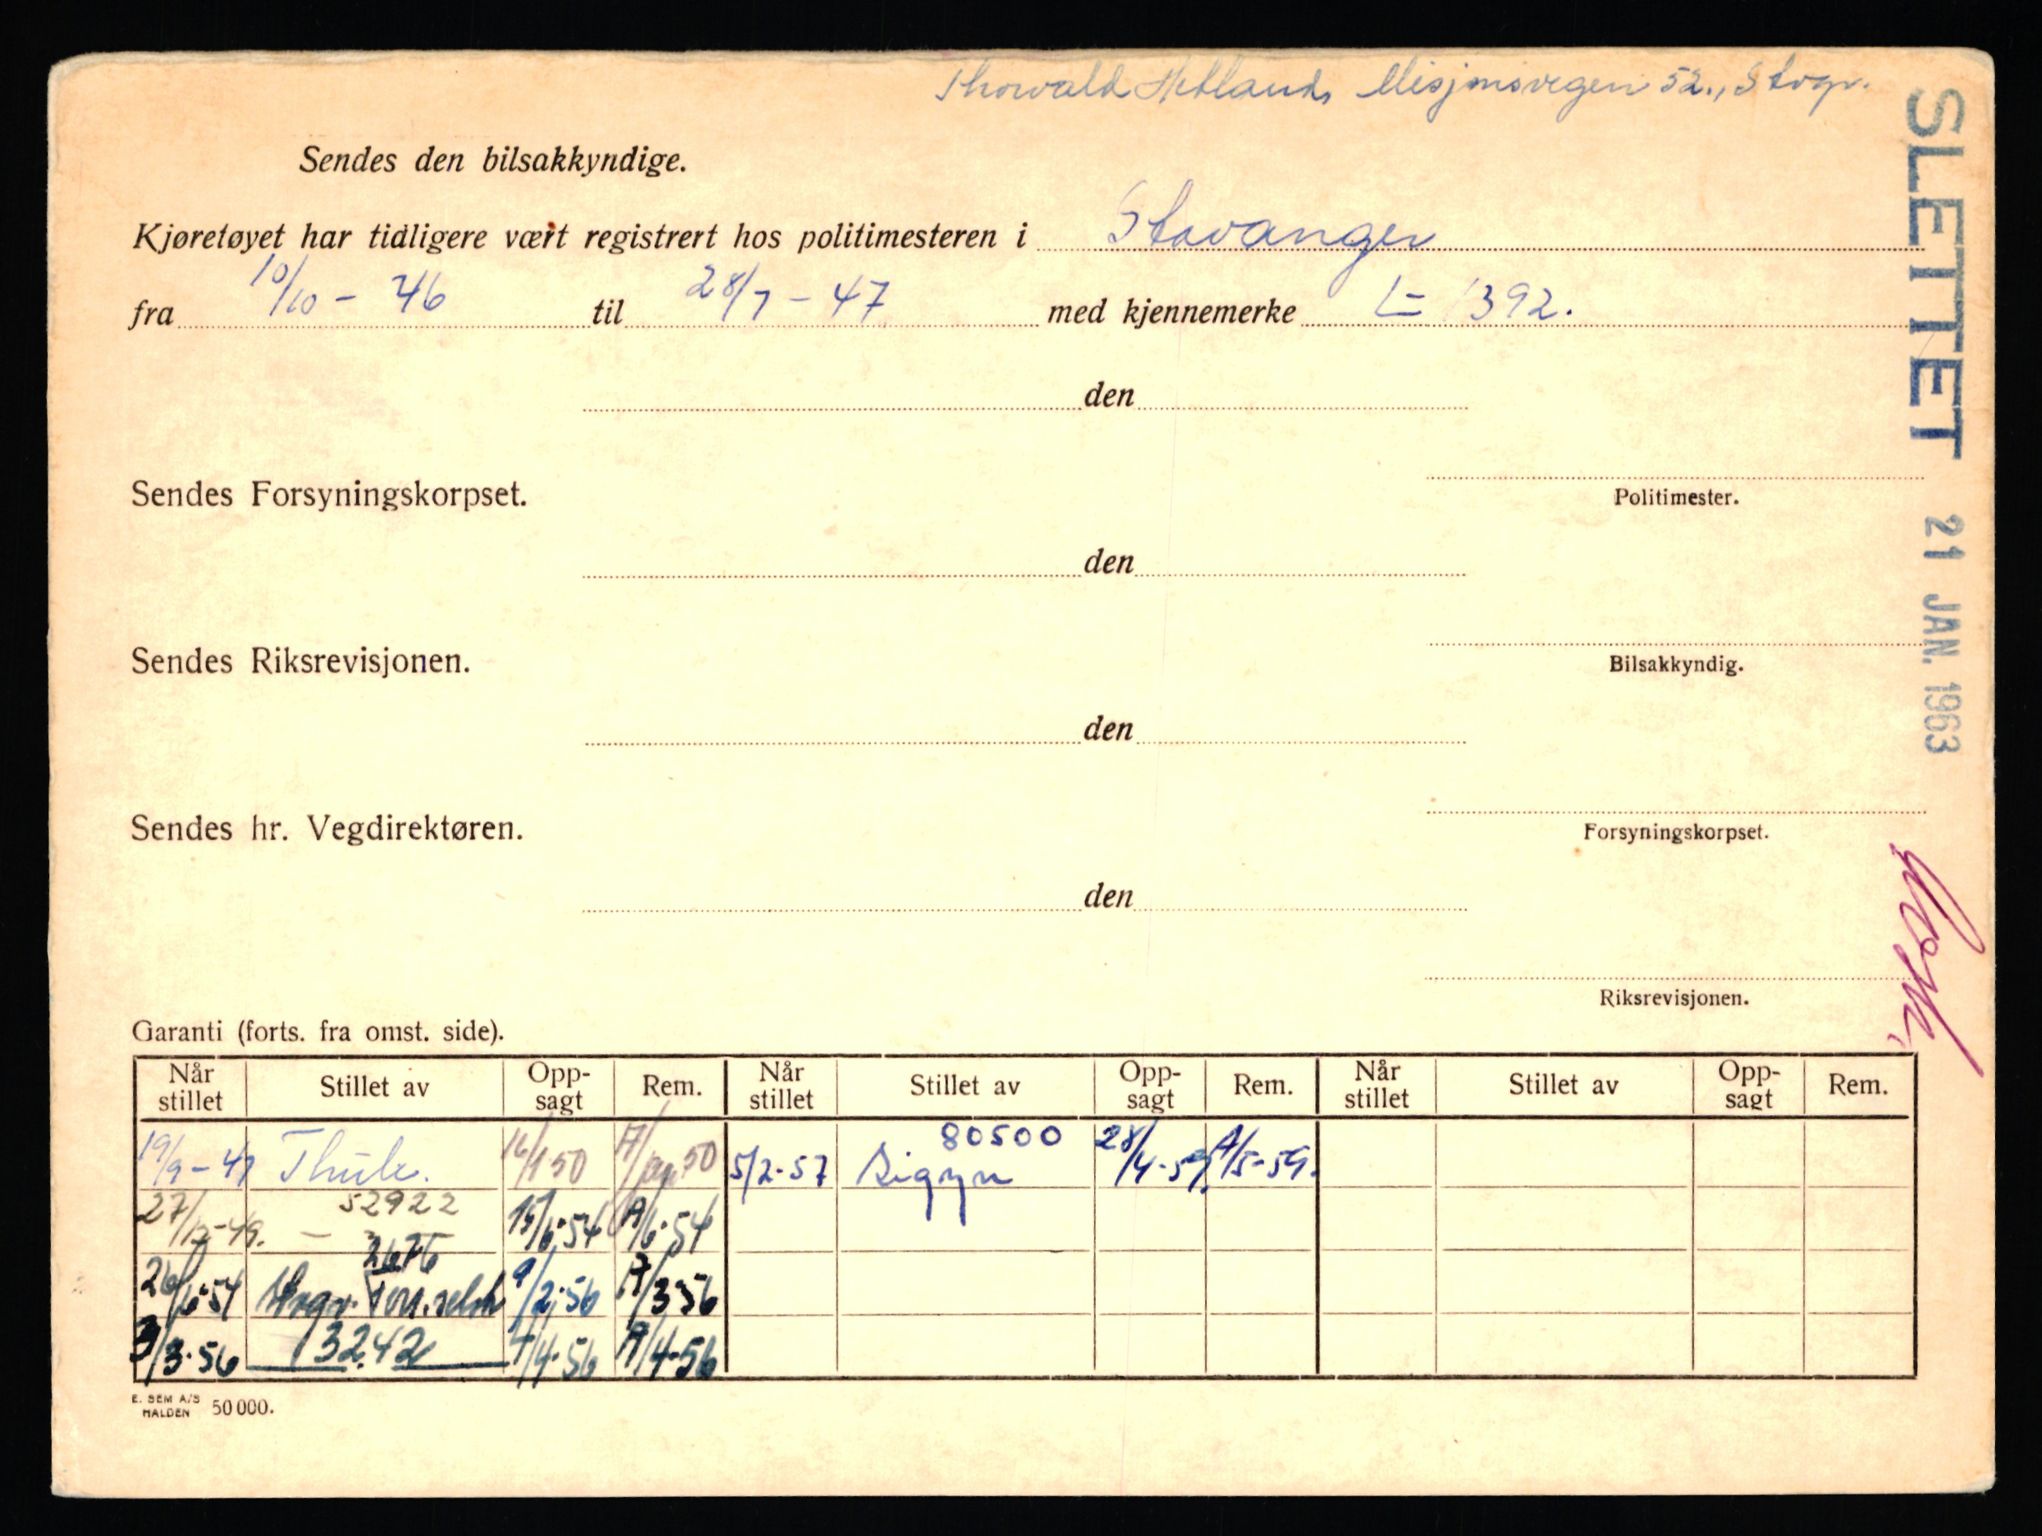 Thorvald Hetland, Misjonsvegen 52., Stvgr.
Sendes den bilsakkyndige.
Kjøretøyet har tidligere vært registrert hos politimesteren i Stavanger
fra 10/10 - 46 til 28/7 - 47 med kjennemerke L- 1392.
den
Politimester.
Sendes Forsyningskorpset.
den
Bilsakkyndig.
Sendes Riksrevisjonen.
den
Forsyningskorpset.
Sendes hr. Vegdirektøren.
den
Riksrevisjonen.
SLETTET 21 JAN. 1963
Garanti (forts. fra omst. side).
Når stillet Stillet av Oppsagt Rem. Når stillet Stillet av Oppsagt Rem. Når stillet Stillet av Oppsagt Rem.
19/9 - 47 Thule. 16/1 50 50 5/2-57 80500 Sigyn 28/4-59 A/5-59.
27/12-49. — 52922 15/6-54 A/6-54
26/6-54 2676 9/2-56 A/3 56
3/3-56 13242 4-56 A/4-56
E. SEM A/S HALDEN 50 000.